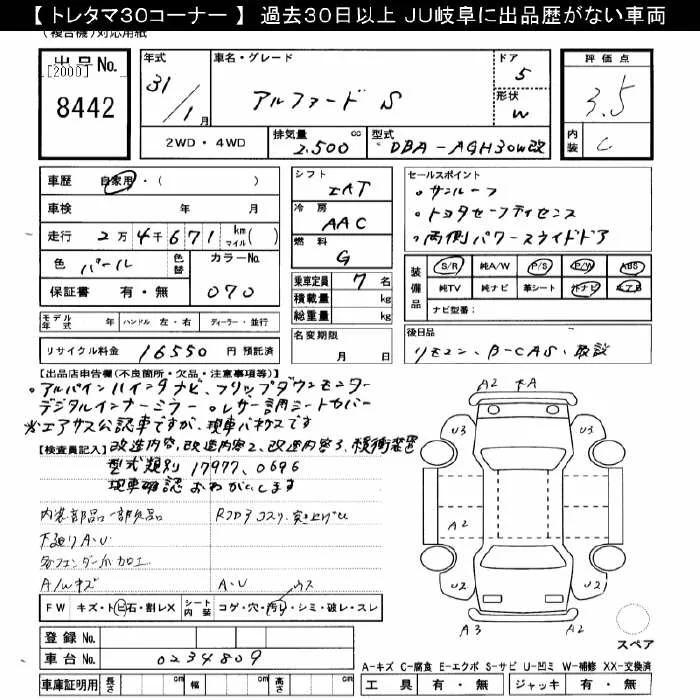 【トレタマ30コーナー】 過去30日以上 JU岐阜に出品歴がない車両
(複合機)対応用紙
出品No. [2000] 8442
年式 31/1月
車名・グレード アルファード S
ドア 5
形状 W
評価点 3.5
内装 C
2WD・4WD
排気量 2.500 cc
型式 DBA-AGH30W改
車歴 自家用・( )
車検 年 月
走行 2万4千671 km マイル( )
色 パール 色替 カラーNo. 070
保証書 有・無
シフト IAT
冷房 AAC
燃料 G
乗車定員 7名
積載量 kg
総重量 kg
セールスポイント
・サンルーフ
・トヨタセーフティセンス
・両側パワースライドドア
装備品 S/R 純A/W P/S P/W ABS
純TV 純ナビ 革シート 社ナビ エアB
ナビ型番:
モデル年式 年 ハンドル 左・右 ディーラー・並行
リサイクル料金 16550 円 預託済
名変期限 月 日
後日品
リモコン、B-CAS、取説
【出品店申告欄(不良箇所・欠品・注意事項等)】
・アルパイン11インチナビ、フリップダウンモニター
デジタルインナーミラー ・レザー調シートカバー
※エアサス公認車ですが、現車バネサスです
【検査員記入】 改造内容、改造内容2、改造内容3、緩衝装置
型式類別 17977、0696
現車確認おねがいします
内装部品一部欠品
下廻りA・U
各フェンダー爪加工
A/Wキズ
A・U
FW キズ・トビ石・割レX シート内装 コゲ・穴・汚レ・シミ・破レ・スレ
登録No.
車台No. 0234809
車庫証明用 長さ cm 幅 cm 高さ cm
A2
A
U3
U3
A2
U2
U2
A3
A2
スペア
A-キズ C-腐食 E-エクボ S-サビ U-凹ミ W-補修 XX-交換済
工具 有・無 ジャッキ 有・無